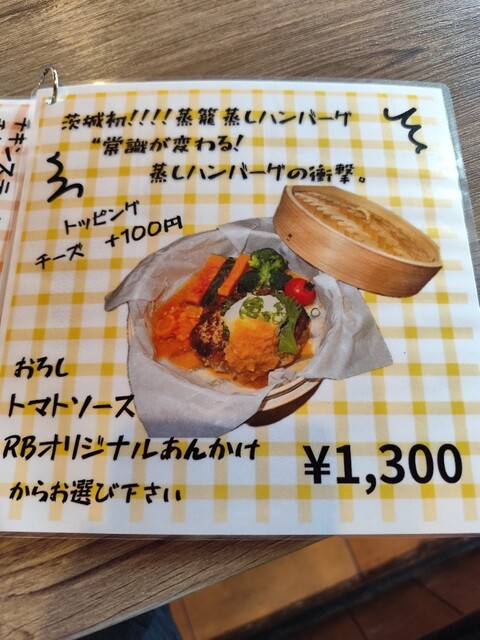 茨城初!!!!蒸籠蒸しハンバーグ
"常識が変わる!
蒸しハンバーグの衝撃。
トッピング
チーズ +100円
おろし
トマトソース
RBオリジナルあんかけ
からお選び下さい
¥1,300